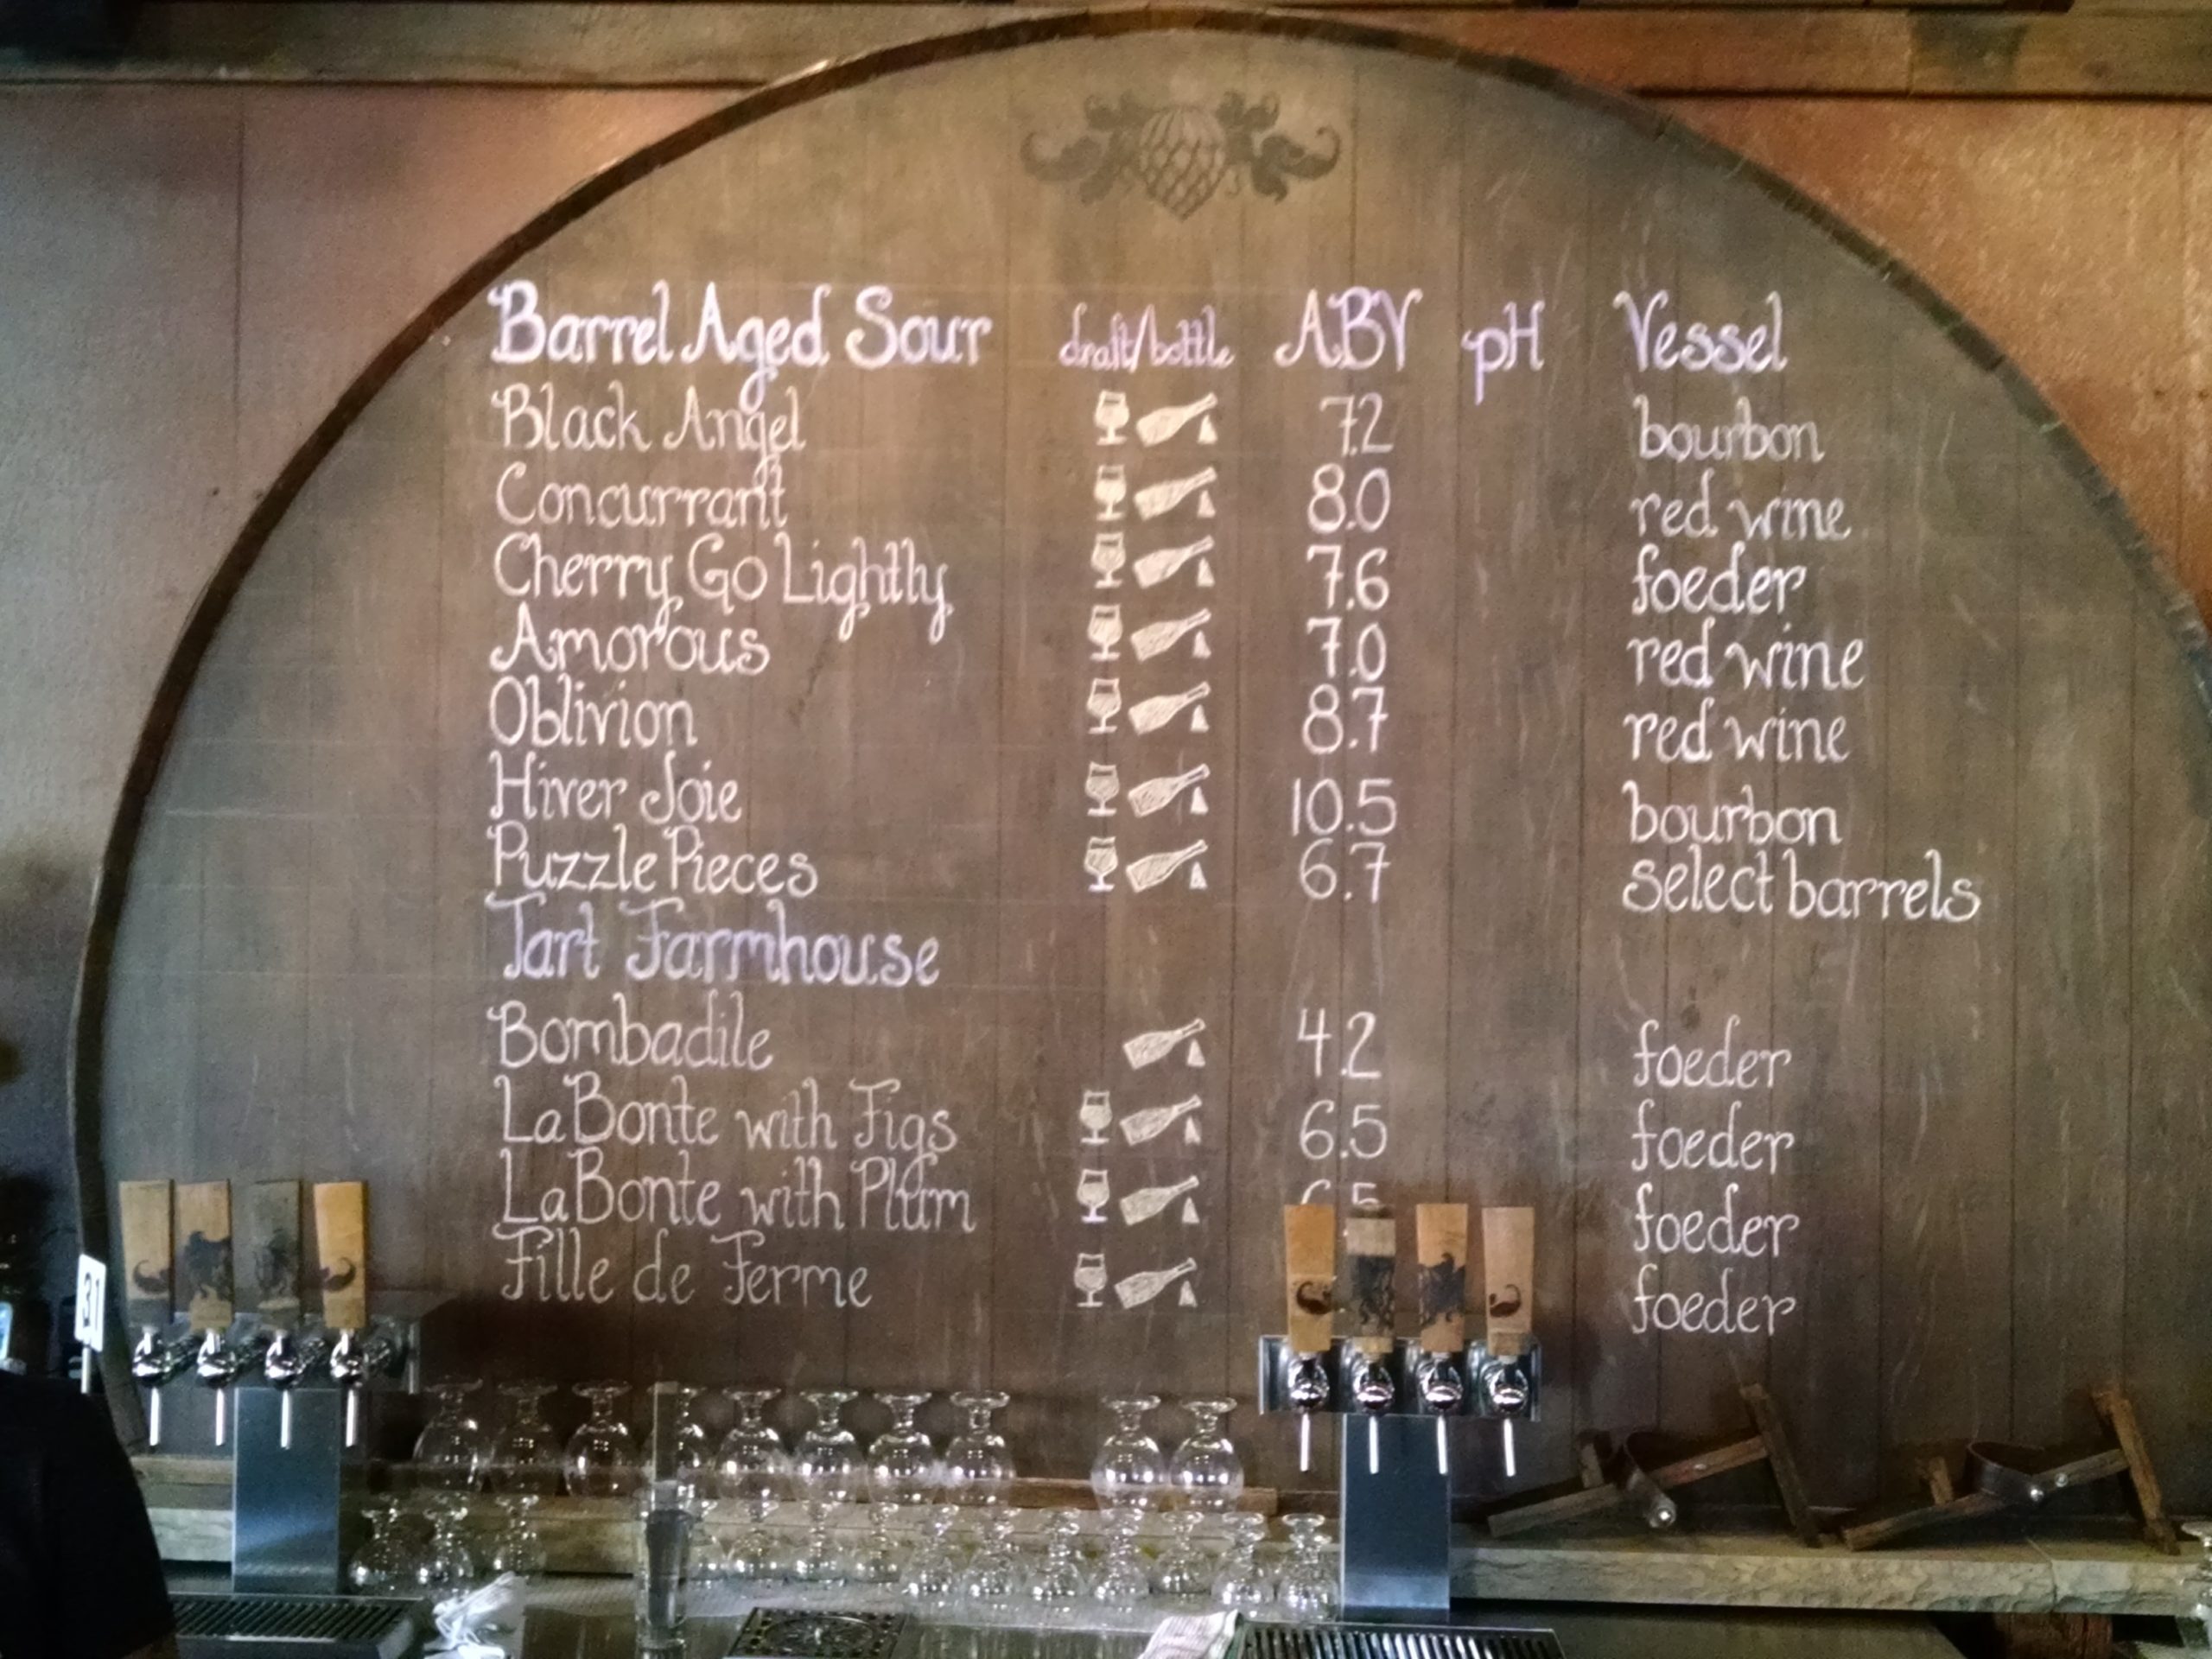 Barrel Aged Sour draft/bottle ABV pH Vessel
Black Angel 7.2 bourbon
Concurrant 8.0 red wine
Cherry Go Lightly 7.6 foeder
Amorous 7.0 red wine
Oblivion 8.7 red wine
Hiver Joie 10.5 bourbon
Puzzle Pieces 6.7 select barrels
Tart Farmhouse
Bombadile 4.2 foeder
La Bonte with Figs 6.5 foeder
La Bonte with Plum 6.5 foeder
Fille de Ferme foeder
31